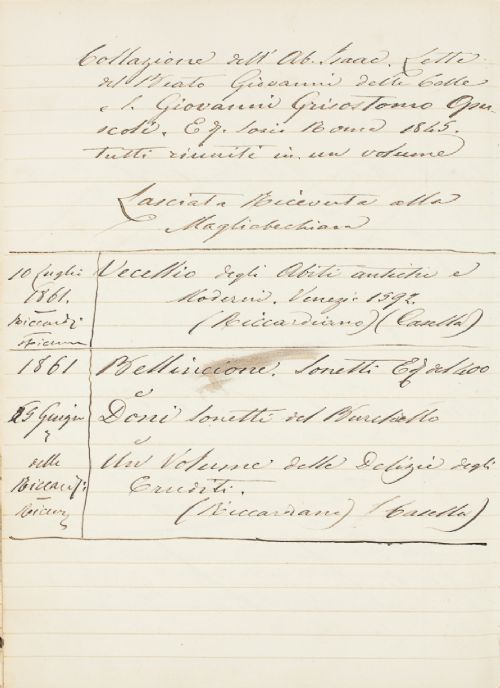 Collazione dell' Ab. Isaac. Lette
del Beato Giovanni delle Celle
e S. Giovanni Grisostomo Opu-
scoli. Ed. Sorio Roma 1845.
tutti riuniti in un volume
Lasciata Ricevuta alla
Magliabechiana
10 Luglio
1861.
Riccardi
Vecellio degli Abiti antichi e
Moderni. Venezia 1592.
(Riccardiano) (Casella)
1861
25 Giugno
delle
Riccardi:
Bellincione. Sonetti Ed. del 400
Doni Sonetti del Burchiello
Un Volume delle Delizie degli
Eruditi.
(Riccardiane) (Casella)